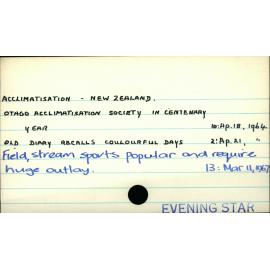 ACCLIMATISATION - NEW ZEALAND.
OTAGO ACCLIMATISATION SOCIETY IN CENTENARY
YEAR 10: Ap. 18, 1964
OLD DIARY RECALLS COULOURFUL DAYS 2: Ap. 21, "
Field, stream sports popular and require
huge outlay. 13: Mar 11, 1967
EVENING STAR